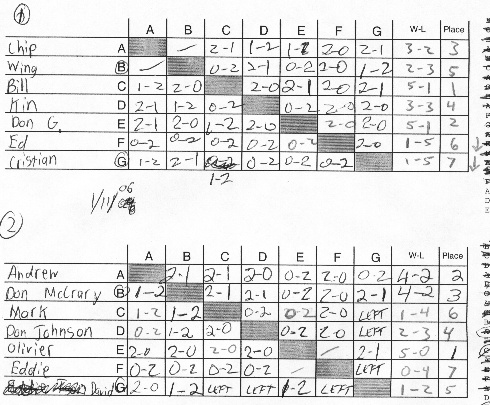 1
A B C D E F G W-L Place
Chip A — 2-1 1-2 1-2 2-0 2-1 3-2 3
Wing B — 0-2 2-1 0-2 2-0 1-2 2-3 5
Bill C 1-2 2-0 2-0 2-1 2-0 2-1 5-1 1
Kin D 2-1 1-2 0-2 0-2 2-0 2-0 3-3 4
Don G. E 2-1 2-0 1-2 2-0 2-0 2-0 5-1 2
Ed F 0-2 0-2 0-2 0-2 0-2 2-0 1-5 6
Cristian G 1-2 2-1 0-2 0-2 0-2 1-5 7
1-2
06
1/11/
2
A B C D E F G W-L Place
Andrew A 2-1 2-1 2-0 0-2 2-0 0-2 4-2 2
Don McCrary B 1-2 2-1 2-1 0-2 2-0 2-1 4-2 3
Mark C 1-2 1-2 0-2 0-2 2-0 LEFT 1-4 6
Don Johnson D 0-2 1-2 2-0 0-2 2-0 LEFT 2-3 4
Olivier E 2-0 2-0 2-0 2-0 / 2-1 5-0 1
Eddie F 0-2 0-2 0-2 0-2 / LEFT 0-4 7
David G 2-0 1-2 LEFT LEFT 1-2 LEFT 1-2 5